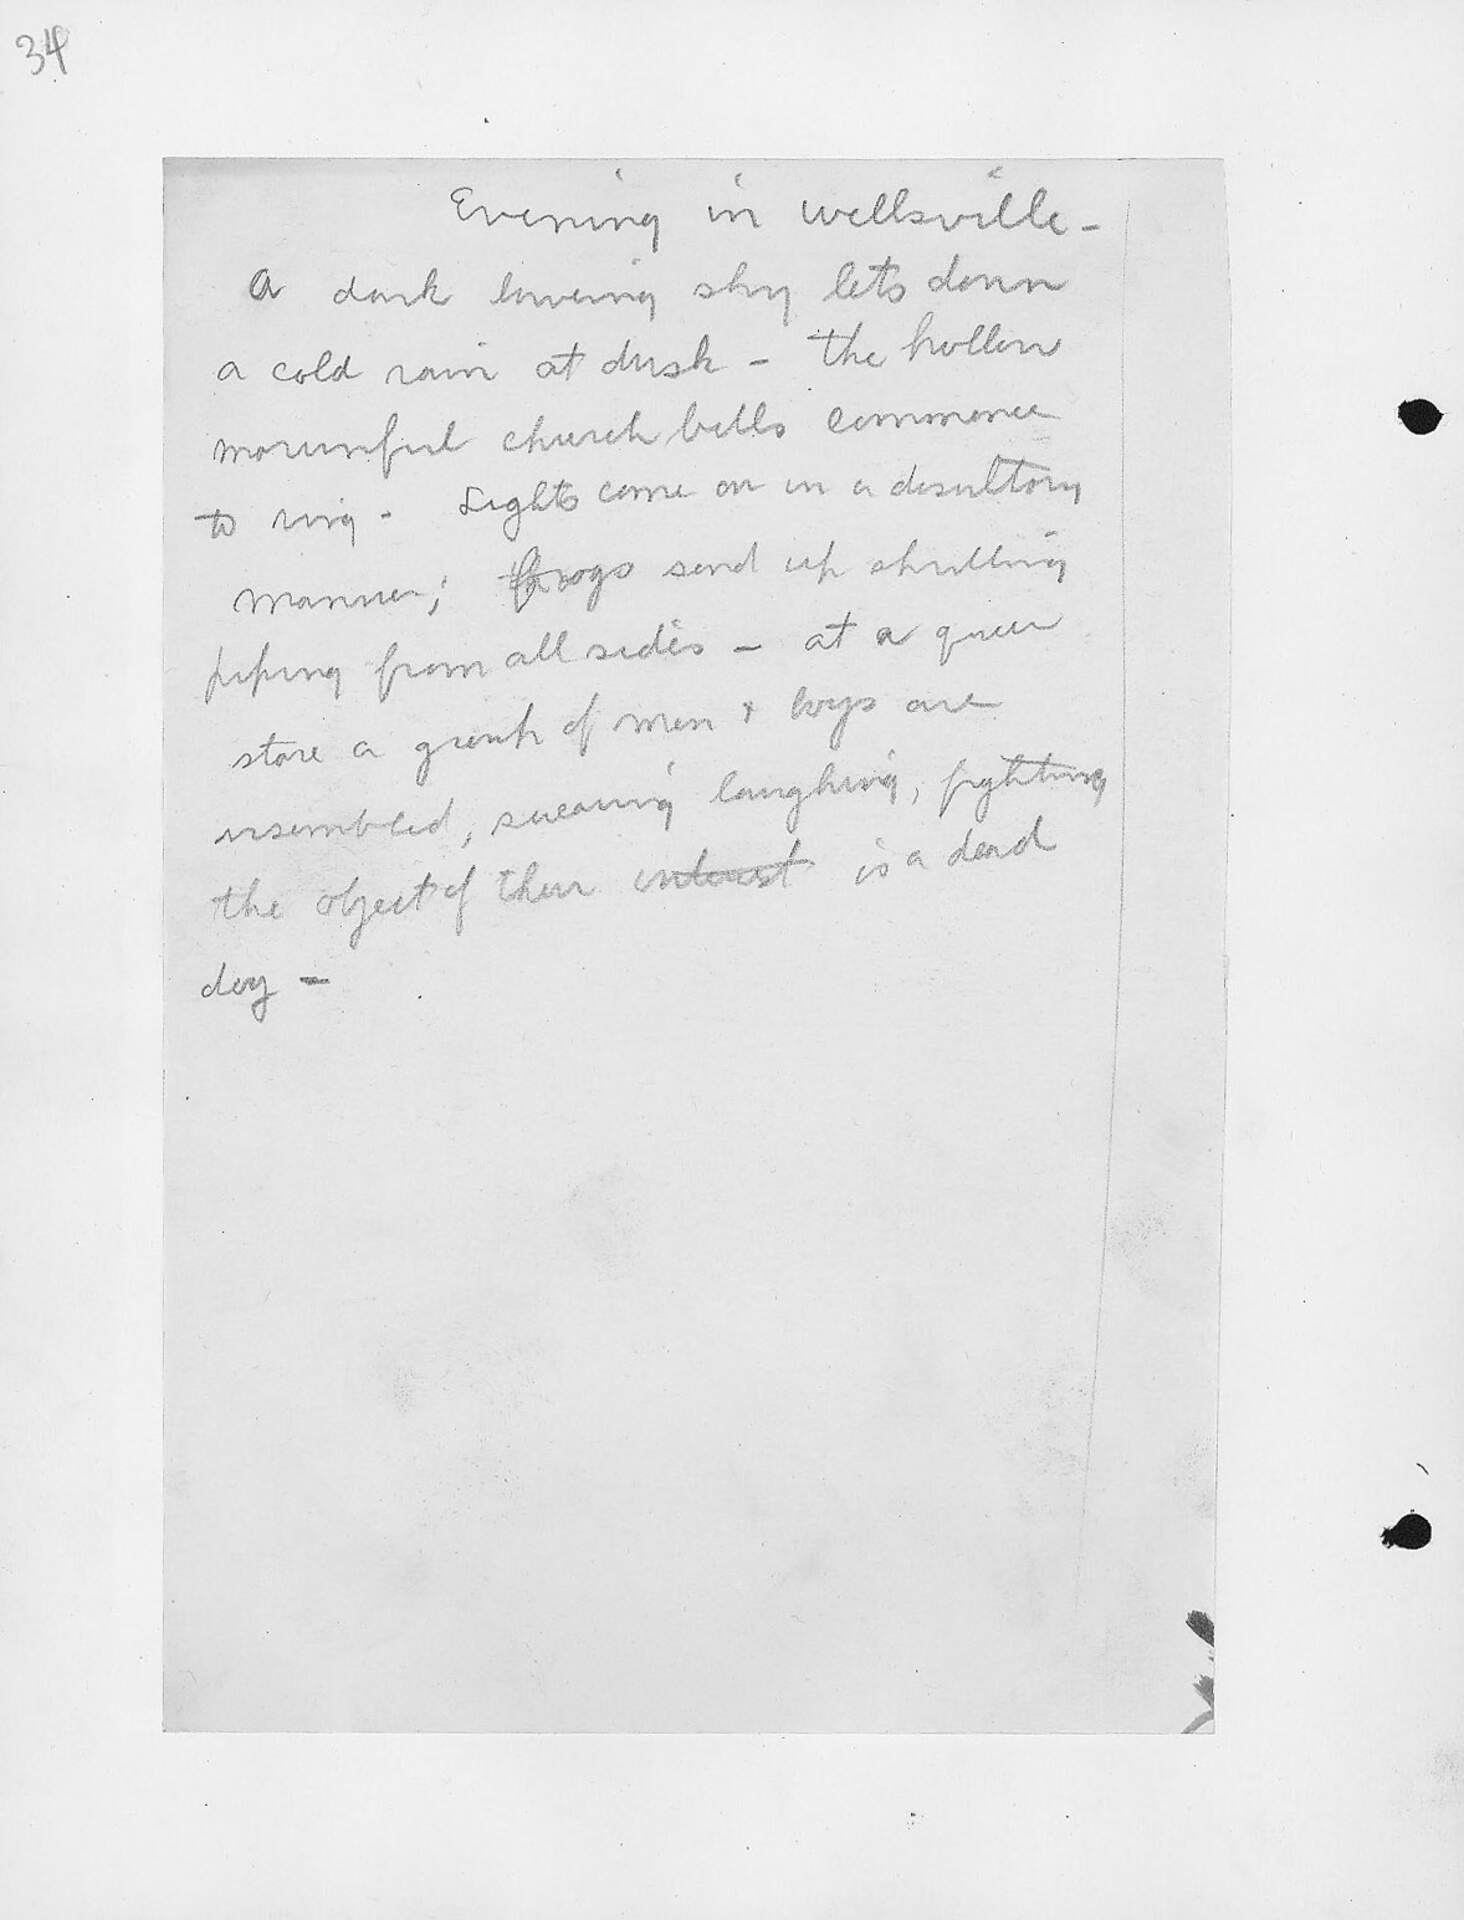 34
Evening in Wellsville -
A dark lowering sky lets down
a cold rain at dusk - The hollow
mournful church bells commence
to ring - Lights come on in a desultory
manner; frogs send up shrilling
piping from all sides - at a queer
store a group of men + boys are
assembled, swearing laughing, fighting
the object of their interest is a dead
dog -